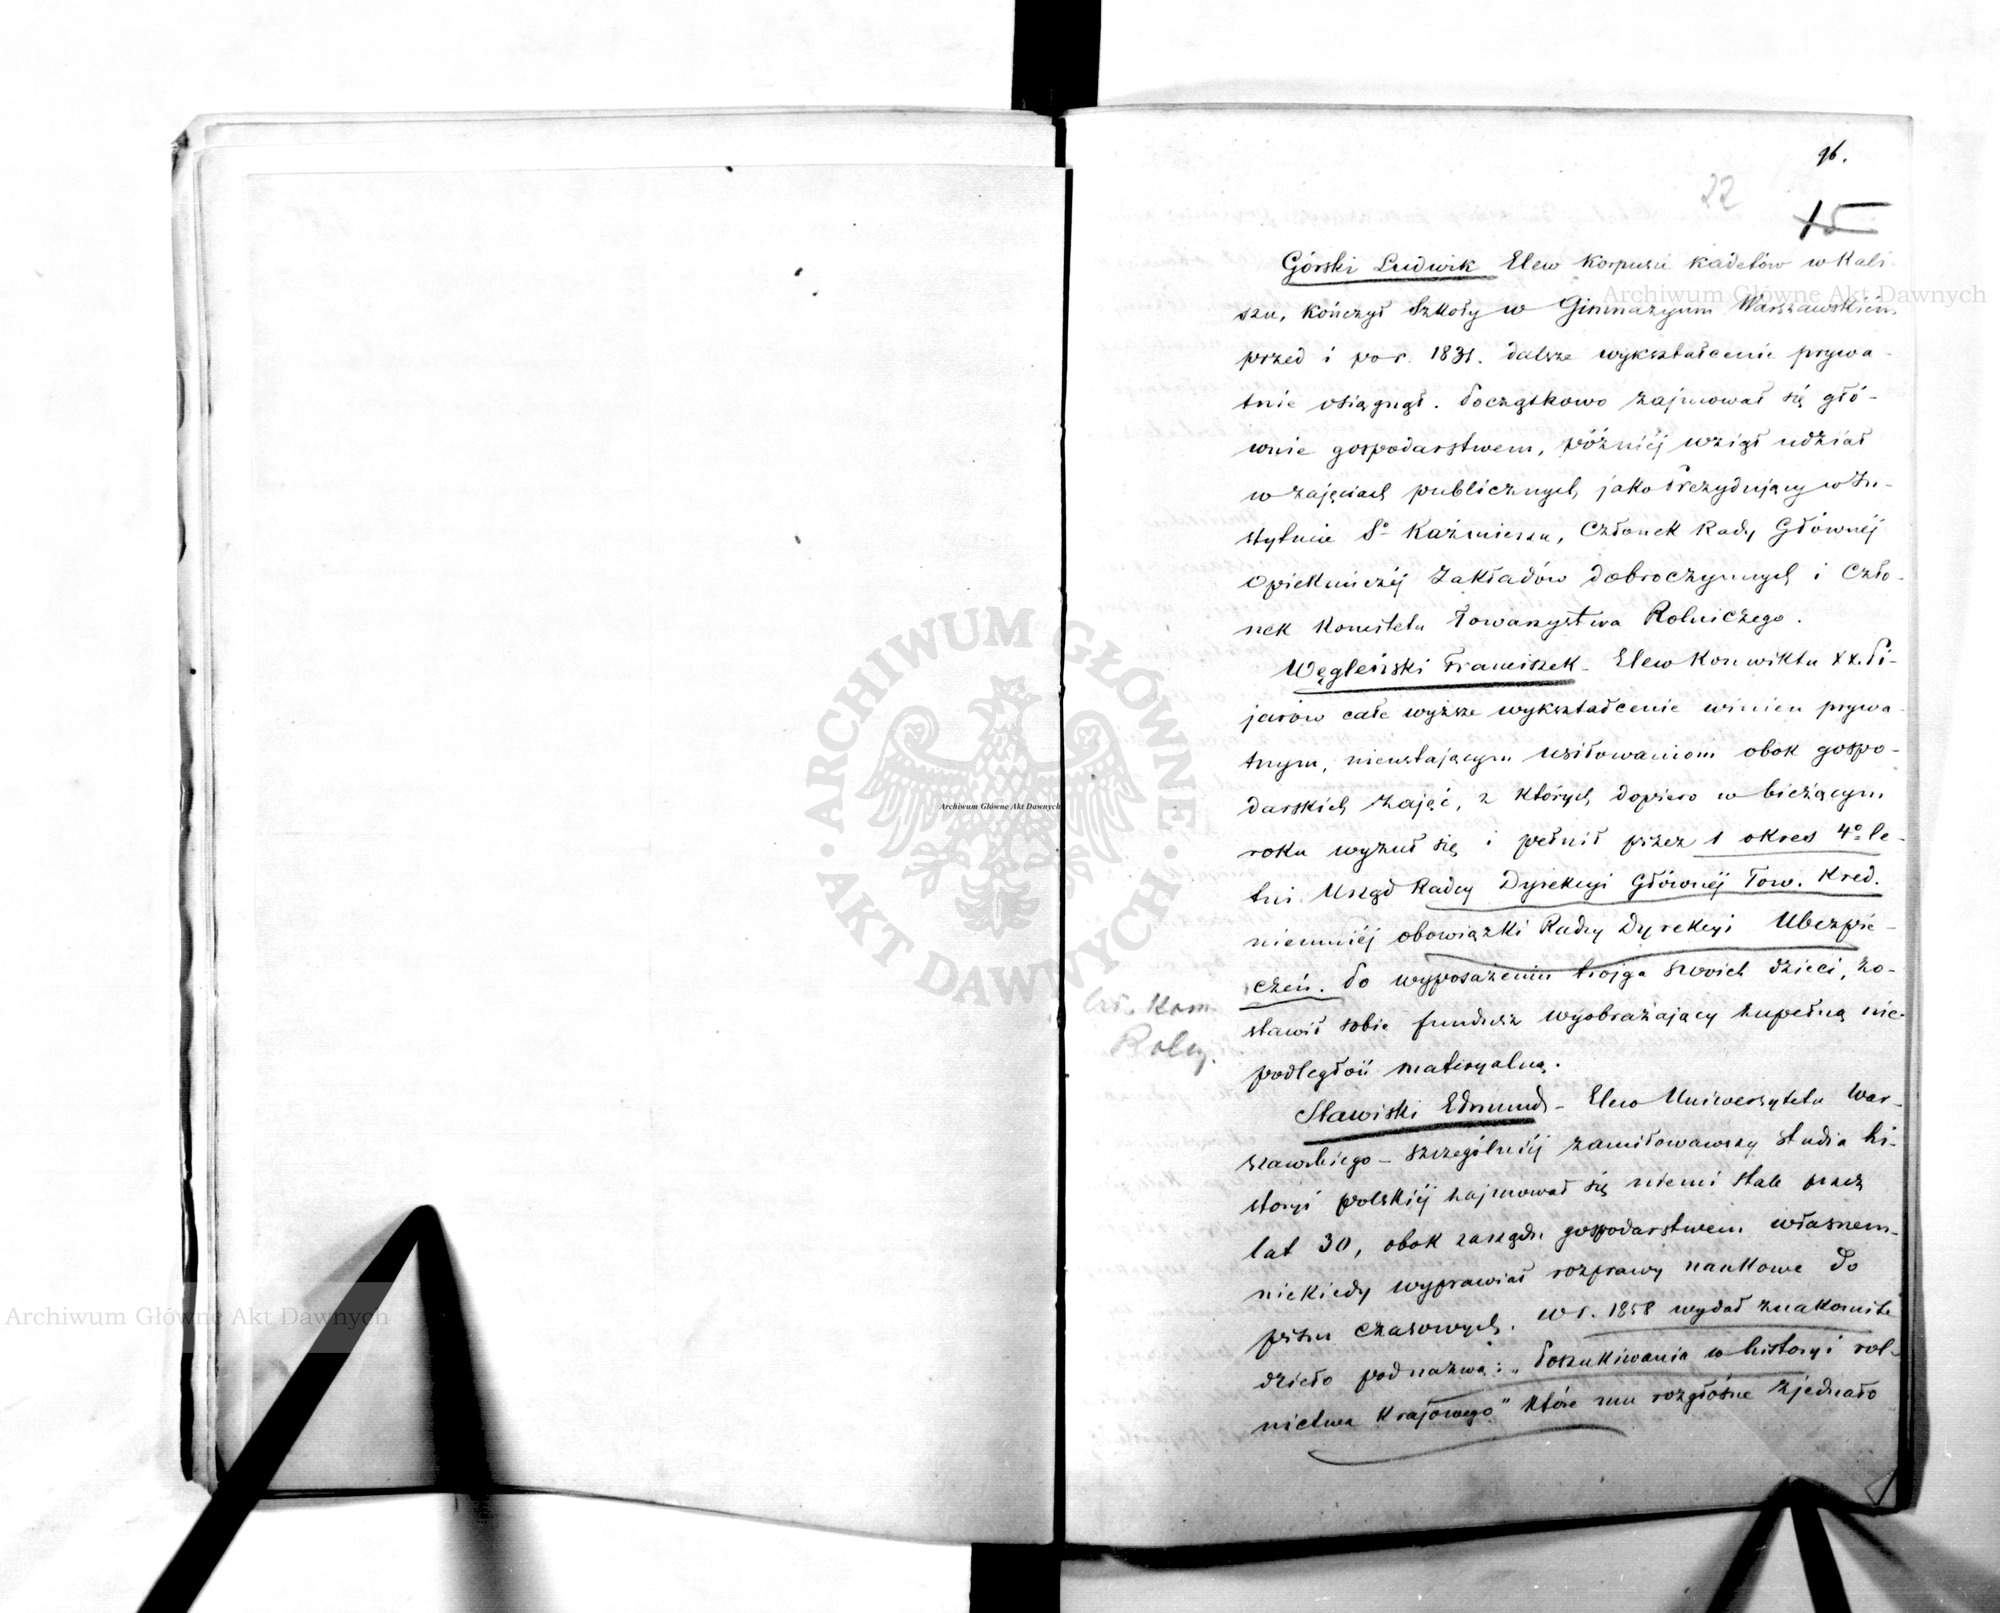 96.
22
15
Górski Ludwik Elew Korpusu kadetów w Kali-
szu, kończył Szkoły w Gimnazyum Warszawskiém
przed i po r. 1831. dalsze wykształcenie prywa-
tnie osiągnął. Początkowo zajmował się głó-
wnie gospodarstwem, późniéj wziął udział
w zajęciach publicznych, jako Prezydujący w In-
stytucie So Kaźmierza, Członek Rady Głównéj
Opiekuńczéj Zakładów dobroczynnych i Czło-
nek Komitetu Towarzystwa Rolniczego.
Węgleński Franciszek - Elew Konwiktu XX. Pi-
jarów całe wyższe wykształcenie winien prywa-
tnym, nieustającym usiłowaniom obok gospo-
darskich zajęć, z których dopiero w bieżącym
roku wyzuł się i pełnił przez 1 okres 4o le-
tni Urząd Radcy Dyrekcyi Głównéj Tow. Kred.
niemniéj obowiązki Radcy Dyrekcyi Ubezpie-
czeń. Po wyposażeniu trojga swoich dzieci, zo-
stawił sobie fundusz wyobrażający zupełną nie-
podległość materyalną.
Kom.
Roln.
Stawiski Edmund - Elew Uniwersytetu War-
szawskiego - szczególniéj zamiłowawszy studia hi-
storyi polskiéj zajmował się niemi stale przez
lat 30, obok zarządu gospodarstwem własnem-
niekiedy wyprawiał rozprawy naukowe do
pism czasowych. w r. 1858 wydał znakomite
dzieło pod nazwą: „Poszukiwania w historyi rol-
nictwa Krajowego" które mu rozgłośne zjednało
Archiwum Główne Akt Dawnych
Archiwum Główne Akt Dawnych
Archiwum Główne Akt Dawnych
ARCHIWUM GŁÓWNE · AKT DAWNYCH ·